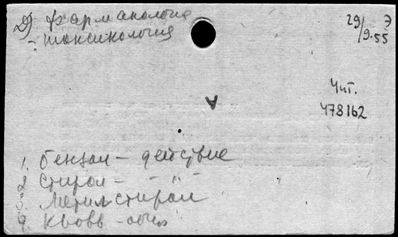 2) Фармакология
- токсикология
29/9.55 Э
Чит.
478162
A
1. бензол - действие
2. Стирол - " -
3. Метилстирол
4. Кровь -